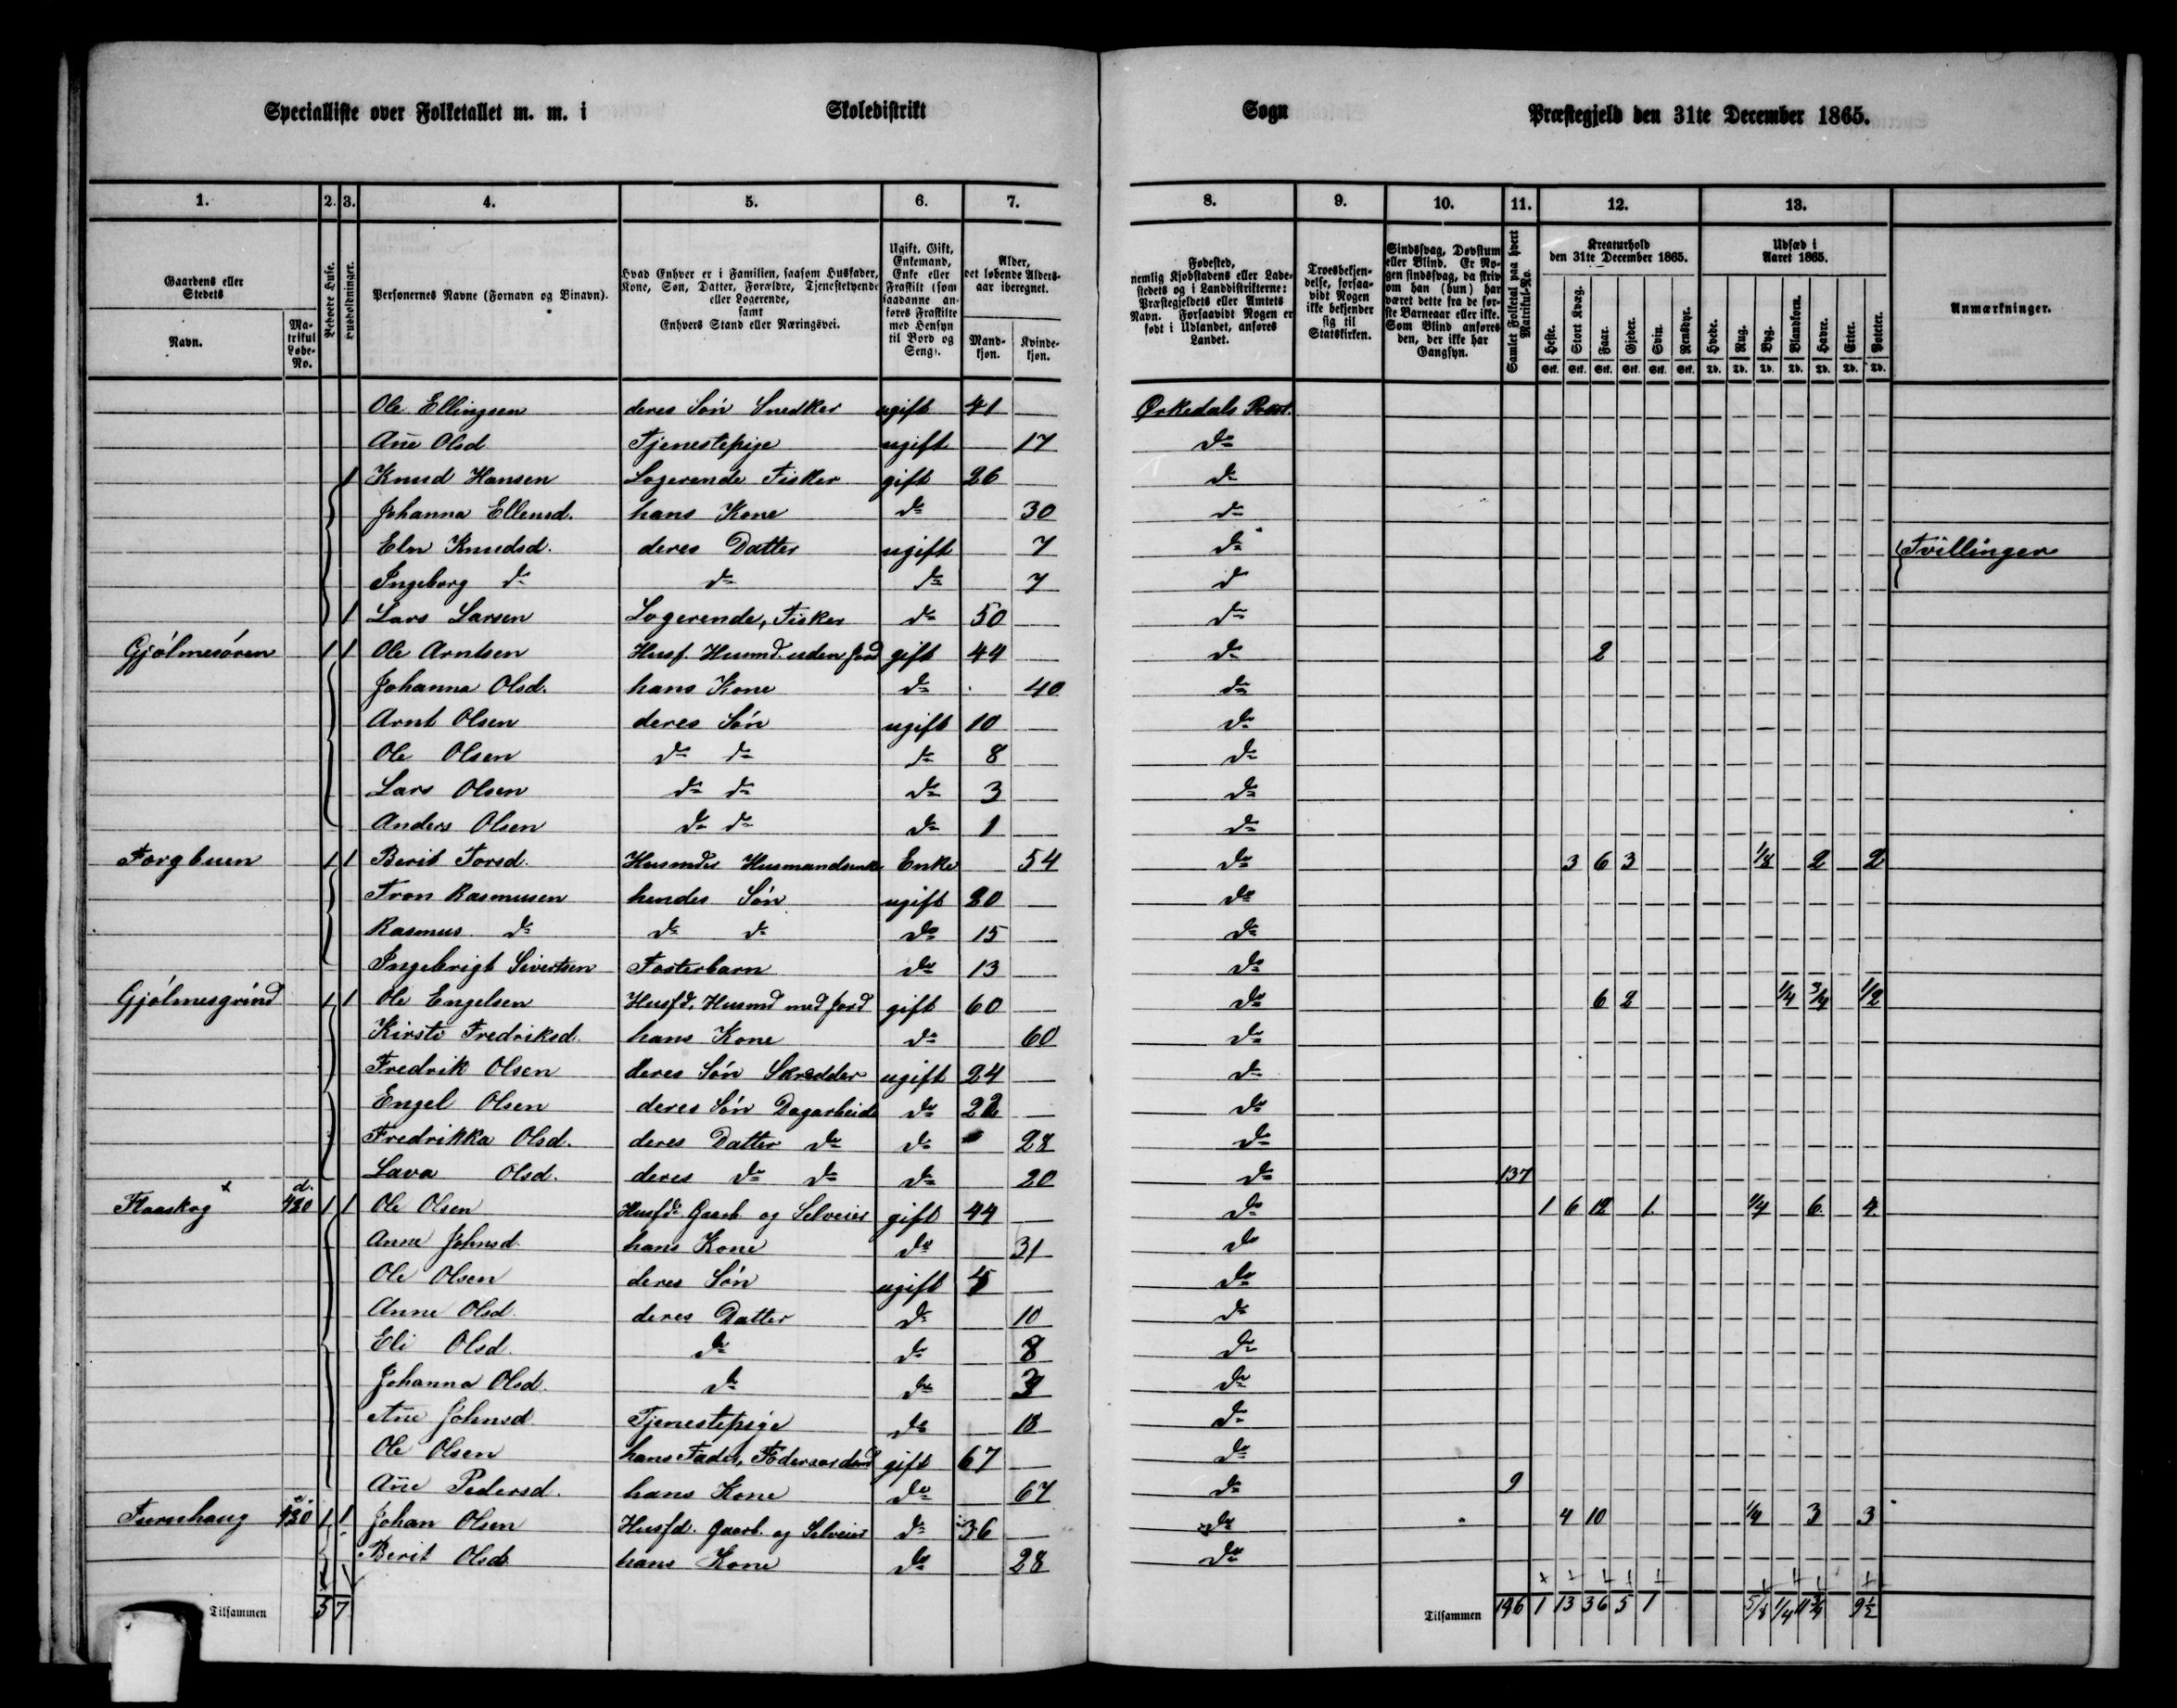 Specialliste over Folketallet m. m. i Skoledistrikt Sogn Præstegjeld den 31te December 1865.
1. 2. 3. 4. 5. 6. 7. 8. 9. 10. 11. 12. 13.
Gaardens eller Stedets
Navn.
Matrikul Løbe-No.
Beboede Huse.
Husholdninger.
Personernes Navne (Fornavn og Binavn).
Hvad Enhver er i Familien, saasom Husfader, Kone, Søn, Datter, Forældre, Tjenestetyende eller Logerende, samt Enhvers Stand eller Næringsvei.
Ugift, Gift, Enkemand, Enke eller Fraskilt (som saadanne anføres Fraskilte med Hensyn til Bord og Seng).
Alder, det løbende Aldersaar iberegnet.
Mandkjøn.
Kvindekjøn.
Fødested, nemlig Kjøbstadens eller Ladestedets og i Landdistrikterne: Præstegjeldets eller Amtets Navn. Forsaavidt Nogen er født i Udlandet, anføres Landet.
Troesbekjendelse, forsaavidt Nogen ikke bekjender sig til Statskirken.
Sindssvag, Døvstum eller Blind. Er Nogen sindssvag, da skriv om han (hun) har været dette fra de første Barneaar eller ikke. Som Blind anføres den, der ikke har Gangsyn.
Samlet Folketal paa hvert Matrikul-No.
Kreaturhold den 31te December 1865.
Heste. Stort Kvæg. Faar. Gjeder. Svin. Rensdyr.
Stk. Stk. Stk. Stk. Stk. Stk.
Udsæd i Aaret 1865.
Hvede. Rug. Byg. Blandkorn. Havre. Erter. Poteter.
Td. Td. Td. Td. Td. Td. Td.
Anmærkninger.
Ole Ellingsen deres Søn Snedker ugift 41 Ørkedals Præst.
Ane Olsd Tjenestepige ugift 17 do
1 Knud Hansen Logerende Fisker gift 26 do
Johanna Ellensd. hans Kone do 30 do
Elen Knudsd. deres Datter ugift 7 do Tvillinger
Ingeborg do do do 7 do
1 Lars Larsen Logerende, Fisker do 50 do
Gjølmesøren 1 1 Ole Arntsen Husf. Husmd. uden Jord gift 44 do 2
Johanna Olsd. hans Kone do 40 do
Arnt Olsen deres Søn ugift 10 do
Ole Olsen do do do 8 do
Lars Olsen do do do 3 do
Anders Olsen do do do 1 do
1 1 Berit Torsd. Husmdr Husmandsenke Enke 54 do 3 6 3 1/8 2 2
Tron Rasmusen hendes Søn ugift 20 do
Rasmus do do do do 15 do
Ingebrigt Sivertsen Fosterbarn do 13 do
Gjølmesgrind 1 1 Ole Engelsen Husfd. Husmd med Jord gift 60 do 6 2 1/4 3/4 1/2
Kirsti Fredriksd. hans Kone do 60 do
Fredrik Olsen deres Søn Skredder ugift 24 do
Engel Olsen deres Søn Dagarbeid do 22 do
Fredrikka Olsd. deres Datter do do 28 do
Lava Olsd. deres do do do 20 do 137
Flaaskog d. 430 1 1 Ole Olsen Husfd. Gaarb. og Selveier gift 44 do 1 6 12 1 1/4 6 4
Anne Johnsd. hans Kone do 31 do
Ole Olsen deres Søn ugift 5 do
Anne Olsd. deres Datter do 10 do
Eli Olsd. do do 8 do
Johanna Olsd. do do 3 do
Ane Johnsd Tjenestepige do 18 do
Ole Olsen hans Fader, Føderaadsmd gift 67 do
Ane Pedersd. hans Kone do 67 do 9
Furuhaug 430 1 1 Johan Olsen Husfd. Gaarb. og Selveier do 36 do 4 10 1/4 3 3
Berit Olsd. hans Kone do 28 do
Tilsammen 5 7 Tilsammen 146 1 13 36 5 1 5/8 1/4 11 3/4 9 1/2